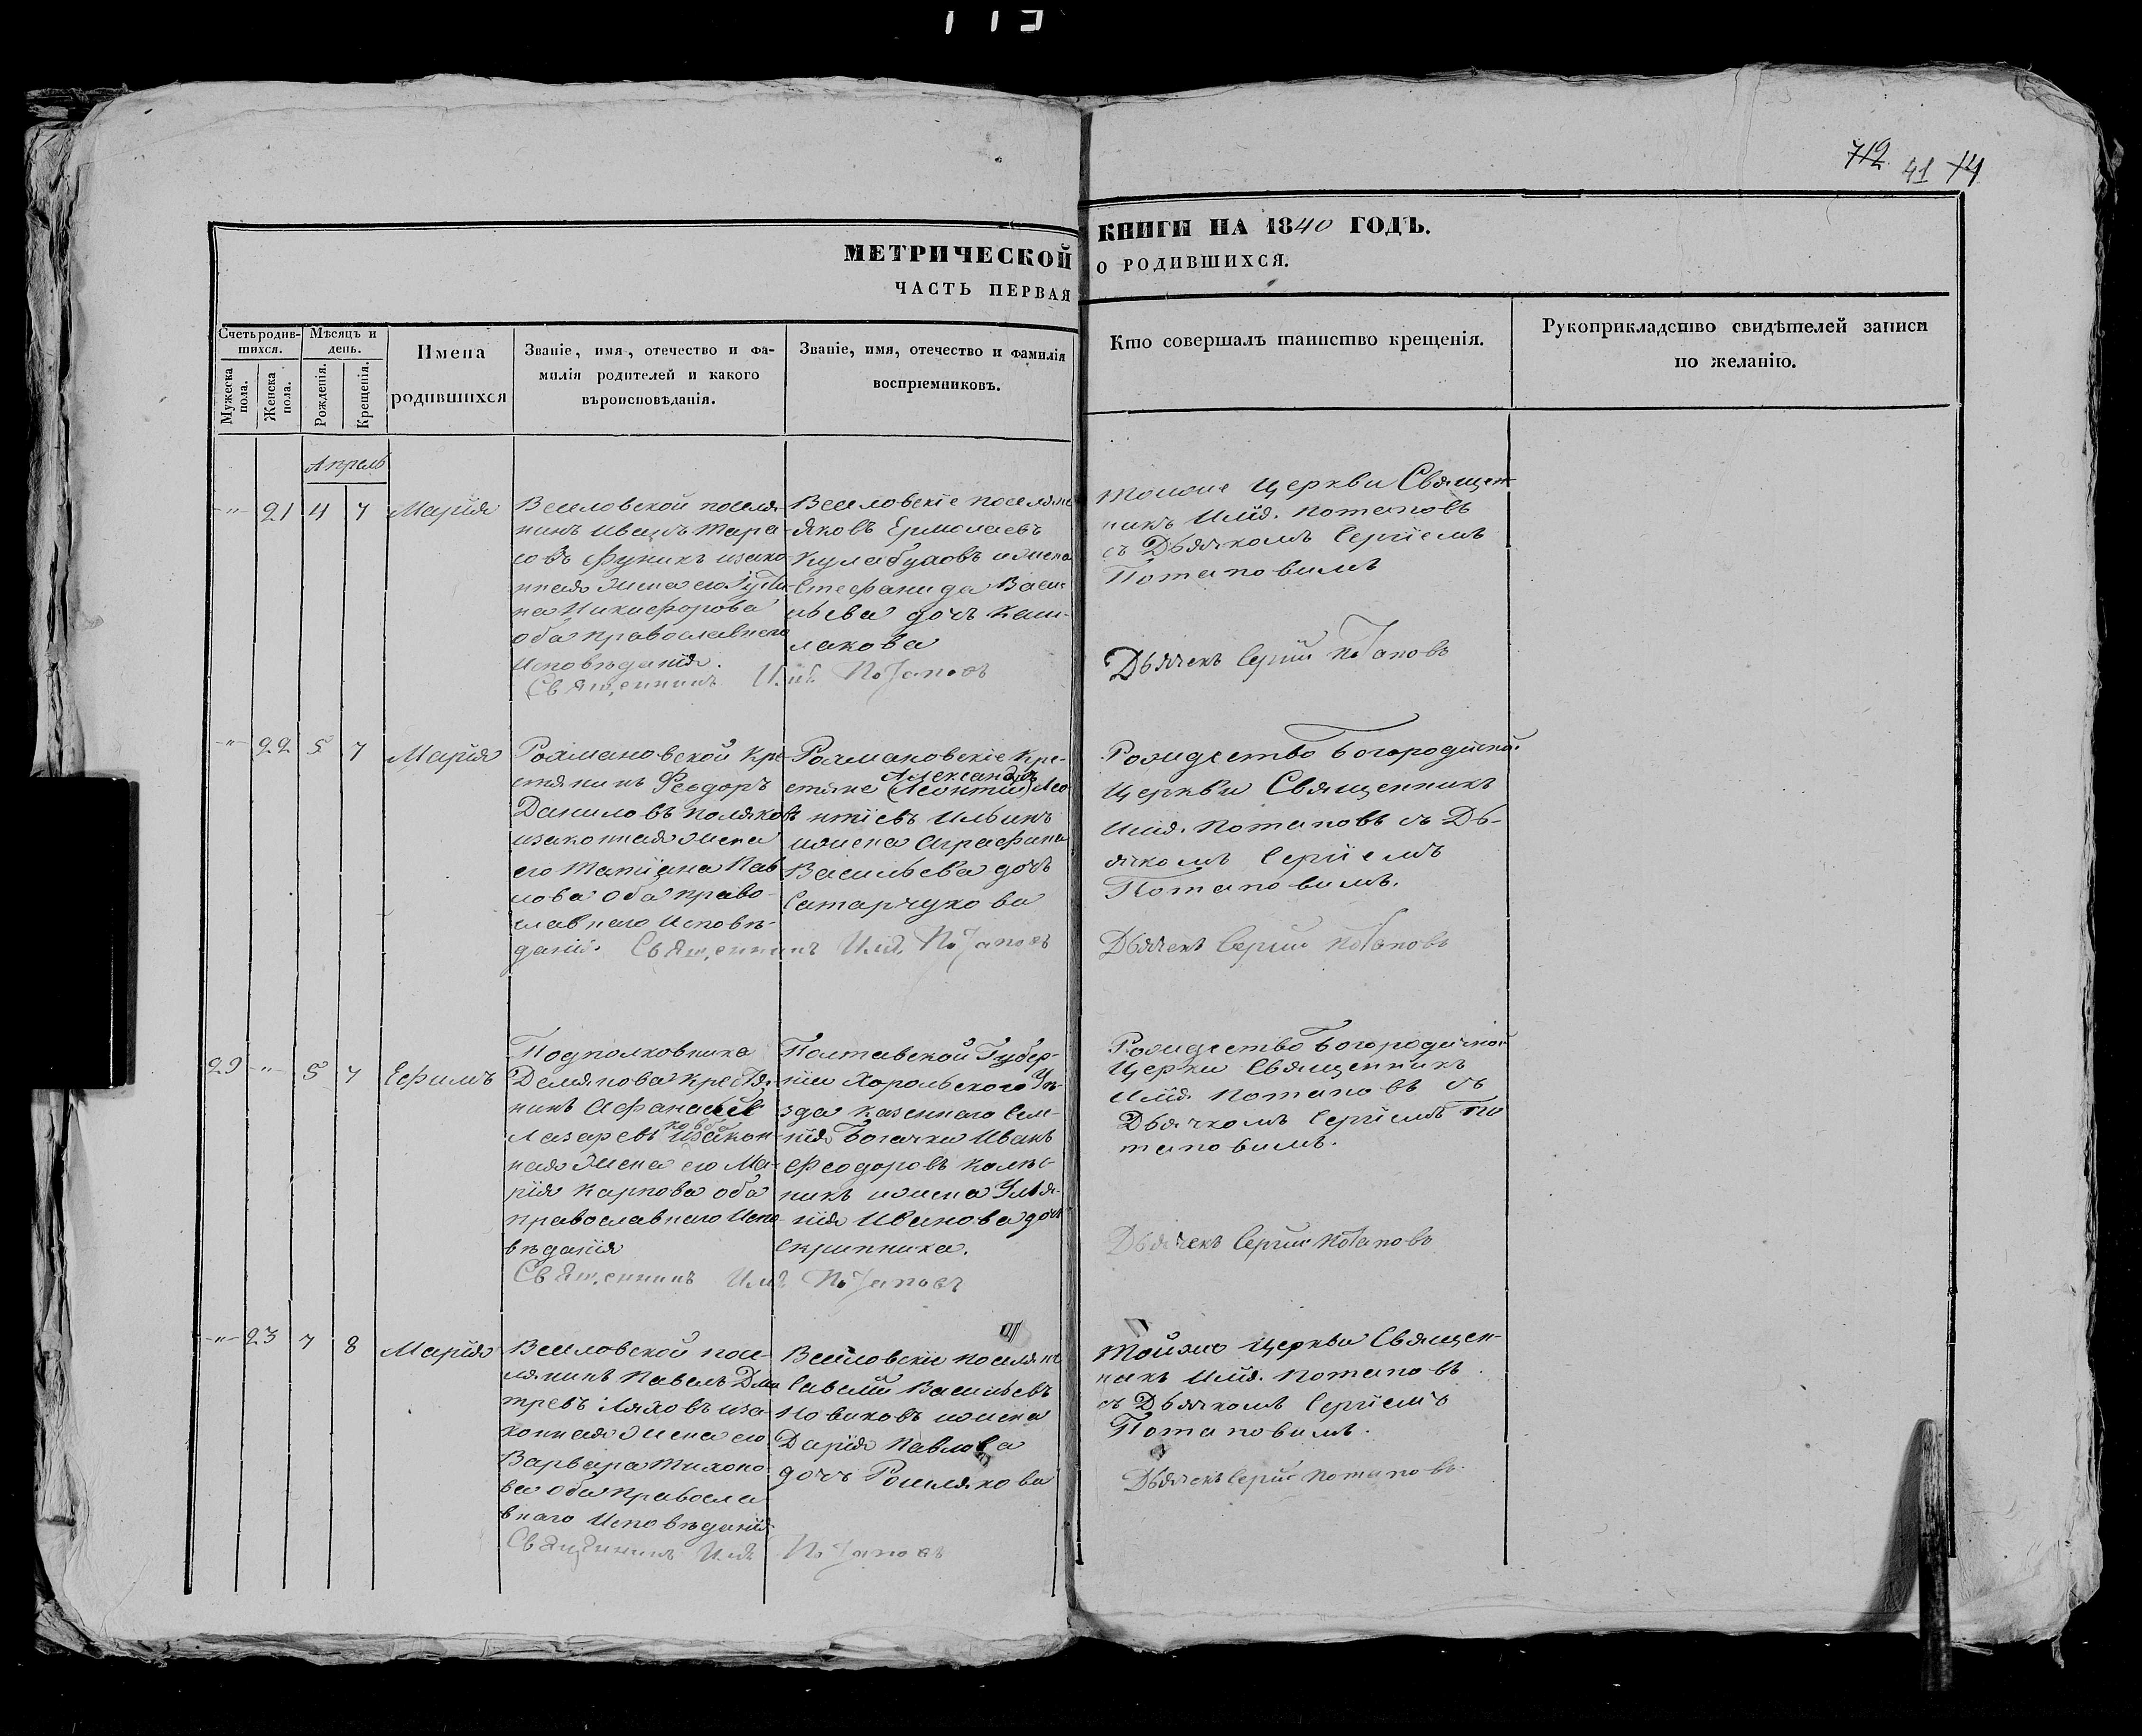 113
712 41 74
МЕТРИЧЕСКОЙ
ЧАСТЬ ПЕРВАЯ
КНИГИ НА 1840 ГОДЪ.
О РОДИВШИХСЯ.
Счетъ родив-
шихся.
Мужеска
пола.
Женска
пола.
Мѣсяцъ и
день.
Рожденія.
Крещенія.
Имена
родившихся
Званіе, имя, отечество и фа-
милія родителей и какого
вѣроисповѣданія.
Званіе, имя, отечество и фамилія
воспріемниковъ.
Кто совершалъ таинство крещенія.
Рукоприкладство свидѣтелей записи
по желанію.
Апрель
-"- 21 4 7 Марія
Веселовской поселя
нинъ Тара
совъ изако
нная жена его
на Никифорова
оба православнаго
Исповѣданія.
Веселовскіе поселяне
Яковъ Ермолаевъ
Кулабуховъ ижена
Стефанида Васи
льева дочь Каш-
лакова
Священникъ Потаповъ
Тойже Церкви Священ
никъ Потаповъ
съ Дьячкомъ Сергіемъ
Потаповымъ
Дьячекъ Сергій Потаповъ
-"- 22 5 7 Марія
Рахмановской Кре
стянинъ Феодоръ
Даниловъ Поляковъ
изаконная жена
его Татіяна Пав
лова оба право
славнаго Исповѣ-
даній.
Рахмановскіе Кре-
Александръ
стяне (Леонтій) Лео
нтіевъ Ильинъ
ижена Аграфина
Васильева дочь
Сатарчукова
Священникъ Потаповъ
Рождество Богородиской
Церкви Священникъ
Потаповъ съ Дь-
ячкомъ Сергіемъ
Потаповымъ.
Дьячекъ Сергій Потаповъ
29 -"- 5 7 Ефимъ
Подполковника
Демянова Крестя
нинъ Афанасій
Лазаревъ изакон
ная жена его Ма-
рія Карпова оба
православнаго Испо
вѣданія
Полтавской Губер-
ніи Хорольского Уѣ-
зда казеннаго Селе-
нія Богачки Иванъ
Феодоровъ
никъ ижена Улья-
нія Иванова дочь
Скрипника.
Священникъ Потаповъ
Рождество Богородичной
Церкви Священникъ
Потаповъ съ
Дьячкомъ Сергіемъ По
таповымъ.
Дьячекъ Сергій Потаповъ
-"- 23 7 8 Марія
Веселовской посе
лянинъ Павелъ Дми
тревъ Ляховъ иза
конная жена его
Варвара Тихоно
ва оба Правосла
внаго Исповѣданія
Веселовскіе поселяне
Савелій Васильевъ
Новиковъ ижена
Дарія Павлова
дочь Рошлякова
Священникъ Потаповъ
Тойже Церкви Священ-
никъ Потаповъ
съ Дьячкомъ Сергіемъ
Потаповымъ.
Дьячекъ Сергій Потаповъ